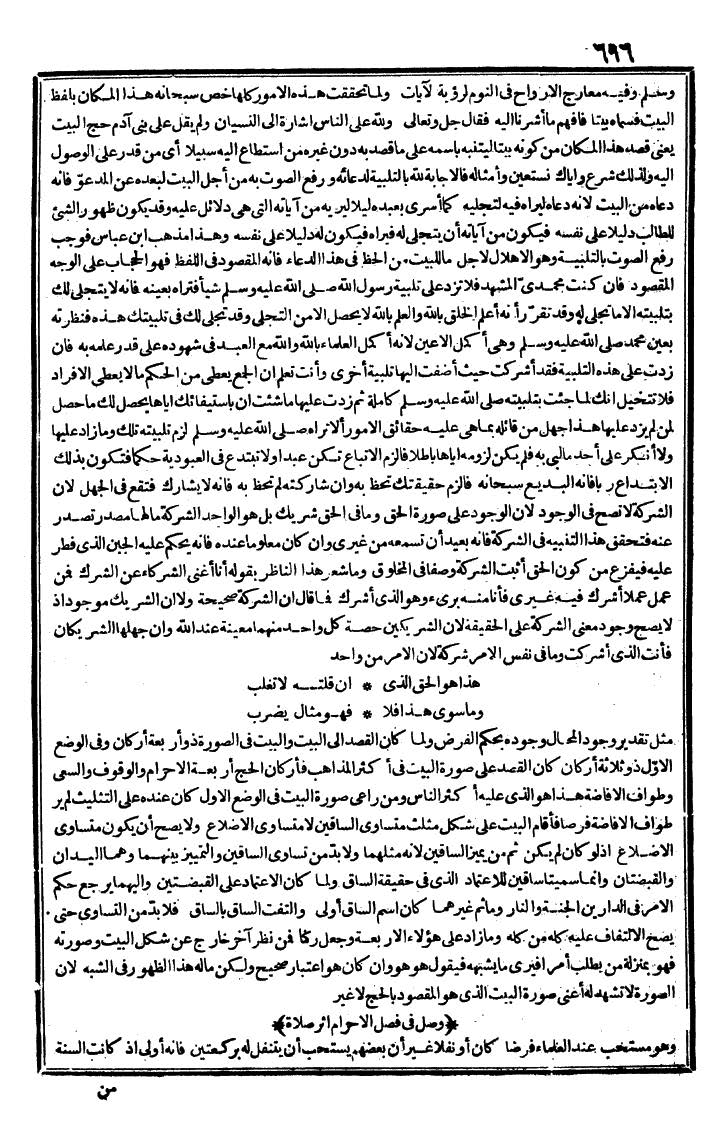 ٦٩٦
وسلم وفيه معارج الارواح فى النوم لرؤية لآيات ولما تحققت هذه الامور كلها خص سبحانه هذا المكان بلفظ
البيت فسماه بيتا فافهم ما أشرنا اليه فقال جل وتعالى ولله على الناس اشارة الى النسيان ولم يقل على بنى آدم حج البيت
يعنى قصد هذا المكان من كونه بيتا ليتنبه باسمه على ما قصد به دون غيره من استطاع اليه سبيلا أى من قدر على الوصول
اليه ولذلك شرع واياك نستعين وأمثاله فالاجابة لله بالتلبية لدعائه ورفع الصوت به من أجل البيت لبعده عن المدعو فانه
دعاه من البيت لانه دعاه ليراه فيه لتجليه كما أسرى بعبده ليلا ليريه من آياته التى هى دلائل عليه وقد يكون ظهور الشئ
للطالب دليلا على نفسه فيكون من آياته أن يتجلى له فيراه فيكون له دليلا على نفسه وهذا مذهب ابن عباس فوجب
رفع الصوت بالتلبية وهو الاهلال لاجل ما للبيت من الحظ فى هذا الدعاء فانه المقصود فى اللفظ فهو الحجاب على الوجه
المقصود فان كنت محمدىّ المشهد فلا تزد على تلبية رسول الله صلى الله عليه وسلم شيأ فتراه بعينه فانه لا يتجلى لك
بتلبيته الا ما تجلى له وقد تقرّر أنه أعلم الخلق بالله والعلم بالله لا يحصل الا من التجلى وقد تجلى لك فى تلبيتك هذه فنظرته
بعين محمد صلى الله عليه وسلم وهى أكمل الاعين لانه أكمل العلماء بالله والله مع العبد فى شهوده على قدر علمه به فان
زدت على هذه التلبية فقد أشركت حيث أضفت اليها تلبية أخرى وأنت تعلم ان الجمع يعطى من الحكم ما لا يعطى الافراد
فلا تتخيل انك لما جئت بتلبيته صلى الله عليه وسلم كاملة ثم زدت عليها ما شئت ان باستيفائك اياها يحصل لك ما حصل
لمن لم يزد عليها هذا جهل من قائله بما هى عليه حقائق الامور ألا تراه صلى الله عليه وسلم لزم تلبيته تلك وما زاد عليها
ولا أنكر على أحد ما لبى به فلم يكن لزومه اياها باطلا فالزم الاتباع تكن عبدا ولا تبتدع فى العبودية حكما فتكون بذلك
الابتداع ربا فانه البديع سبحانه فالزم حقيقتك تحظ به وان شاركته لم تحظ به فانه لا يشارك فتقع فى الجهل لان
الشركة لا تصح فى الوجود لان الوجود على صورة الحق وما فى الحق شريك بل هو الواحد الشركة ما لها مصدر تصدر
عنه فتحقق هذا التنبيه فى الشركة فانه بعيد أن تسمعه من غيرى وان كان معلوما عنده فانه يحكم عليه الجبن الذى فطر
عليه فيفزع من كون الحق أثبت الشركة وصفا فى المخلوق وما شعر هذا الناظر بقوله أنا أغنى الشركاء عن الشرك فمن
عمل عملا أشرك فيه غيرى فأنا منه برىء وهو الذى أشرك فما قال ان الشركة صحيحة ولا ان الشريك موجود اذ
لا يصح وجود معنى الشركة على الحقيقة لان الشريكين حصة كل واحد منهما معينة عند الله وان جهلها الشريكان
فأنت الذى أشركت وما فى نفس الامر شركة لان الامر من واحد
هذا هو الحق الذى * ان قلته لا تغلب
وما سوى هذا فلا * فهو مثال يضرب
مثل تقدير وجود المحال وجوده بحكم الفرض ولما كان القصد الى البيت والبيت فى الصورة ذو أربعة أركان وفى الوضع
الاوّل ذو ثلاثة أركان كان القصد على صورة البيت فى أكثر المذاهب فأركان الحج أربعة الاحرام والوقوف والسعى
وطواف الافاضة هذا هو الذى عليه أكثر الناس ومن راعى صورة البيت فى الوضع الاول كان عنده على التثليث لم ير
طواف الافاضة فرضا فأقام البيت على شكل مثلث متساوى الساقين لا متساوى الاضلاع ولا يصح أن يكون متساوى
الاضلاع اذ لو كان لم يكن ثم من يميز الساقين لانه مثلهما ولا بدّ من تساوى الساقين والتمييز بينهما وهما اليدان
والقبضتان وانما سميتا ساقين للاعتماد الذى فى حقيقة الساق ولما كان الاعتماد على القبضتين واليهما يرجع حكم
الامر فى الدارين الجنة والنار وما ثم غيرهما كان اسم الساق أولى والتفت الساق بالساق فلا بدّ من التساوى حتى
يصح الالتفاف عليه كله من كله وما زاد على هؤلاء الاربعة وجعل ركنا فمن نظر آخر خارج عن شكل البيت وصورته
فهو بمنزلة من يطلب أمرا فيرى ما يشبهه فيقول هو هو وان كان هو اعتبار صحيح ولكن ماله هذا الظهور فى الشبه لان
الصورة لا تشهد له أعنى صورة البيت الذى هو المقصود بالحج لا غير
﴿وصل فى فصل الاحرام اثر صلاة﴾
وهو مستحب عند العلماء فرضا كان أو نفلا غير أن بعضهم يستحب أن يتنفل له بركعتين فانه أولى اذ كانت السنة
من